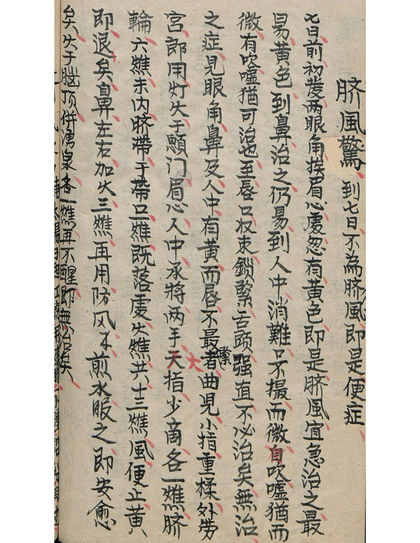 臍風驚 到七日不為臍風即是便症
七日前初發兩眼角挨眉心處忽有黃色即是臍風宜急治之最
易黃色到鼻治之仍易到人中消難口不撮而微自吹噓猶而
微有吹噓猶可治也至唇口收束鎖緊舌頭强直不必治矣無治
之症見眼角鼻及人中有黃而唇不最緊者曲児小指重揉外劳
宮即用灯火于顖門眉心人中承將兩手大指少商各一燋臍
輪六燋未內臍帶于帶口燋既落處火燋共十三燋風便止黃
即退矣鼻左右加火三燋再用防风不煎水服之即安愈
矣火于腦頂併湧泉各一燋再不醒即無治矣